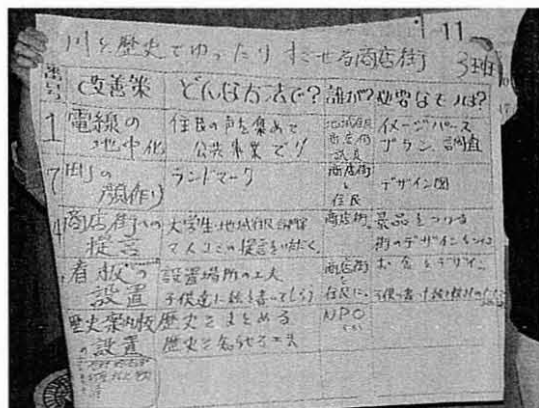 1-11
川と歴史でゆったりすごせる商店街 3班
番号 改善策 どんな方法で? 誰が? 必要なものは?
1 電線の地中化 住民の声を集めて公共事業で 地域住民 商店街 イメージパース プラン、調査
7 町の顔作り ランドマーク 商店街と住民 デザイン図
商店街への提言 大学生・地域住民 マスコミの提言を 商店街 景品をつける 街のデザイン
看板の設置 設置場所の工夫 子供達に絵を書いてもらう 商店街 住民 お金とデザイン
歴史案内板の設置 歴史をまとめる 歴史を知らせる工夫 NPO